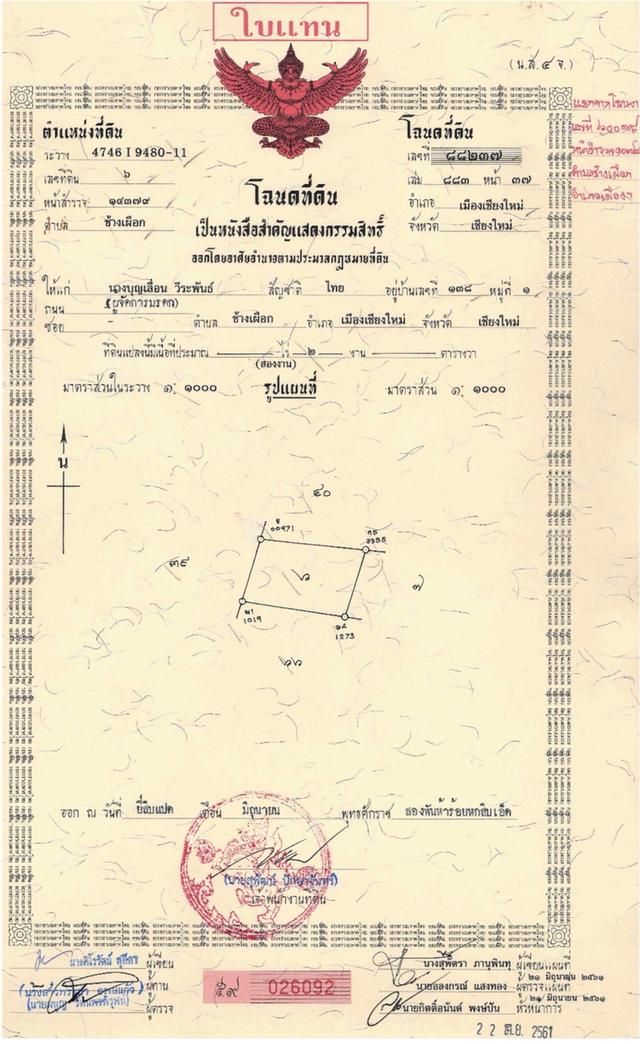 ใบแทน
(น.ส.๔ จ.)
ตำแหน่งที่ดิน
ระวาง 4746 I 9480-11
เลขที่ดิน ๖
หน้าสำรวจ ๑๔๓๗๙
ตำบล ช้างเผือก
โฉนดที่ดิน
เลขที่ ๘๘๒๓๗
เล่ม ๘๘๓ หน้า ๓๗
อำเภอ เมืองเชียงใหม่
จังหวัด เชียงใหม่
โฉนดที่ดิน
เป็นหนังสือสำคัญแสดงกรรมสิทธิ์
ออกโดยอาศัยอำนาจตามประมวลกฎหมายที่ดิน
ให้แก่ นางบุญเลื่อน วีระพันธ์ สัญชาติ ไทย อยู่บ้านเลขที่ ๑๓๘ หมู่ที่ ๑
(ผู้จัดการมรดก)
ถนน
ซอย - ตำบล ช้างเผือก อำเภอ เมืองเชียงใหม่ จังหวัด เชียงใหม่
ที่ดินแปลงนี้มีเนื้อที่ประมาณ ไร่ ๒ งาน ตารางวา
(สองงาน)
มาตราส่วนในระวาง ๑: ๑๐๐๐ รูปแผนที่ มาตราส่วน ๑: ๑๐๐๐
น
๔๐
60971
3355
๓๙
๖
๗
1019
1273
๖๖
ออก ณ วันที่ ยี่สิบแปด เดือน มิถุนายน พุทธศักราช สองพันห้าร้อยหกสิบเอ็ด
เจ้าพนักงานที่ดิน
ผู้เขียน
ผู้ทาน
ผู้ตรวจ
026092
นางสุพัตรา ภานุพินทุ ผู้เขียนแผนที่
๒๑ มิถุนายน ๒๕๖๑
นายอลงกรณ์ แสงทอง ผู้ตรวจแผนที่
๒๑ มิถุนายน ๒๕๖๑
นายกิตติ์อนันต์ พงษ์ปัน หัวหน้าการ
2 2 มิ.ย. 2561